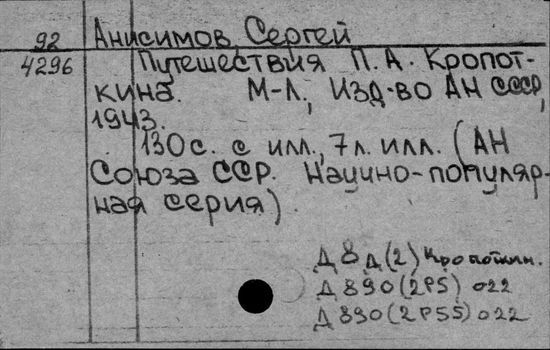 92 Анисимов, Сергей
4296 Путешествия П. А. Кропот-
кина. М-Л., Изд-во АН СССР,
1943.
130 с. с илл., 7 л. илл. (АН
Союза ССР. Научно-популяр-
ная серия).
Д 8д(2) Кропоткин.
Д 890(2Р5) о22
Д 890(2Р55) о22